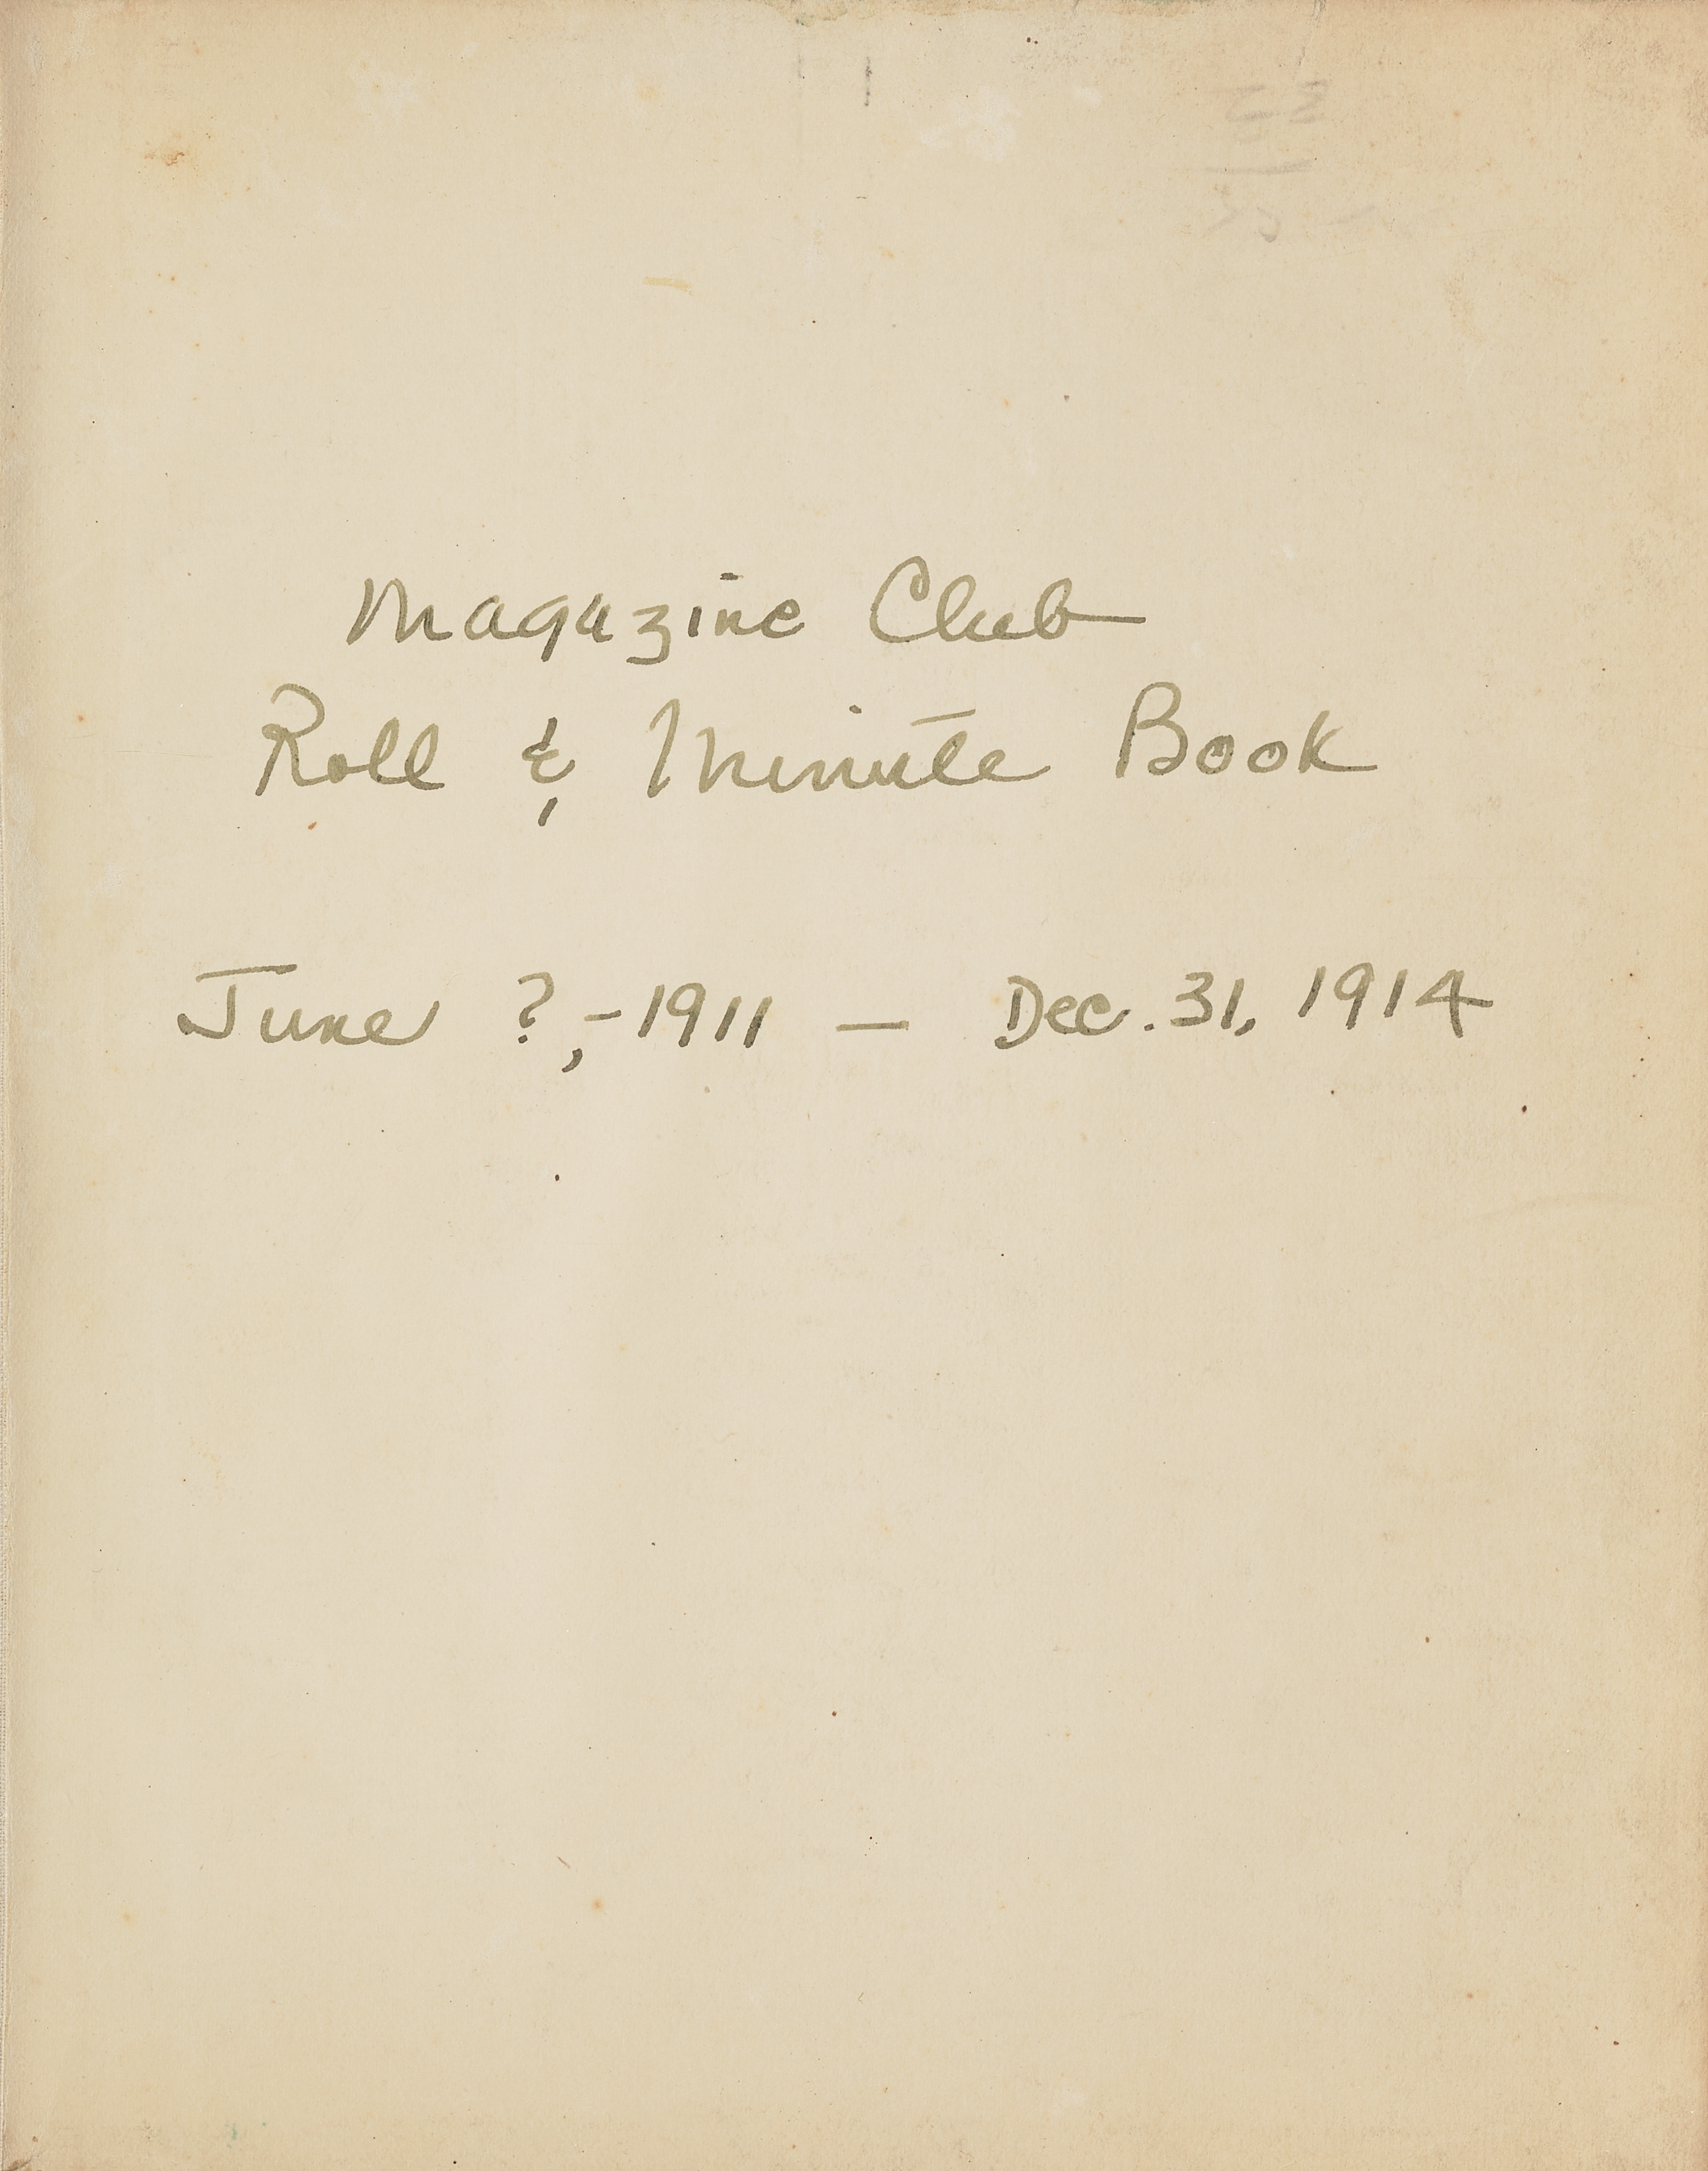 Magazine Club
Roll & Minute Book
June ?, - 1911 — Dec. 31, 1914